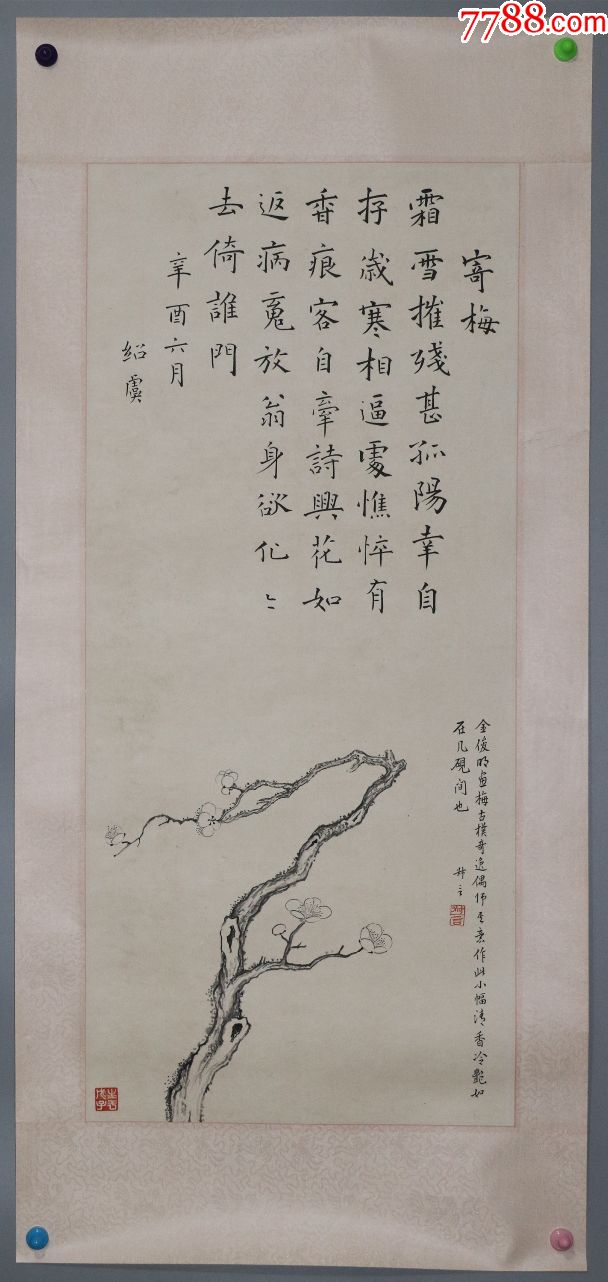 7788.com
寄梅
霜雪摧殘甚孤陽幸自
存歲寒相逼處憔悴有
香痕客自牽詩興花如
返病䰟放翁身欲化〻
去倚誰門
辛酉六月
紹虞
金俊明畫梅古樸奇逸偶师其意作此小幅清香冷艷如
在几硯间也